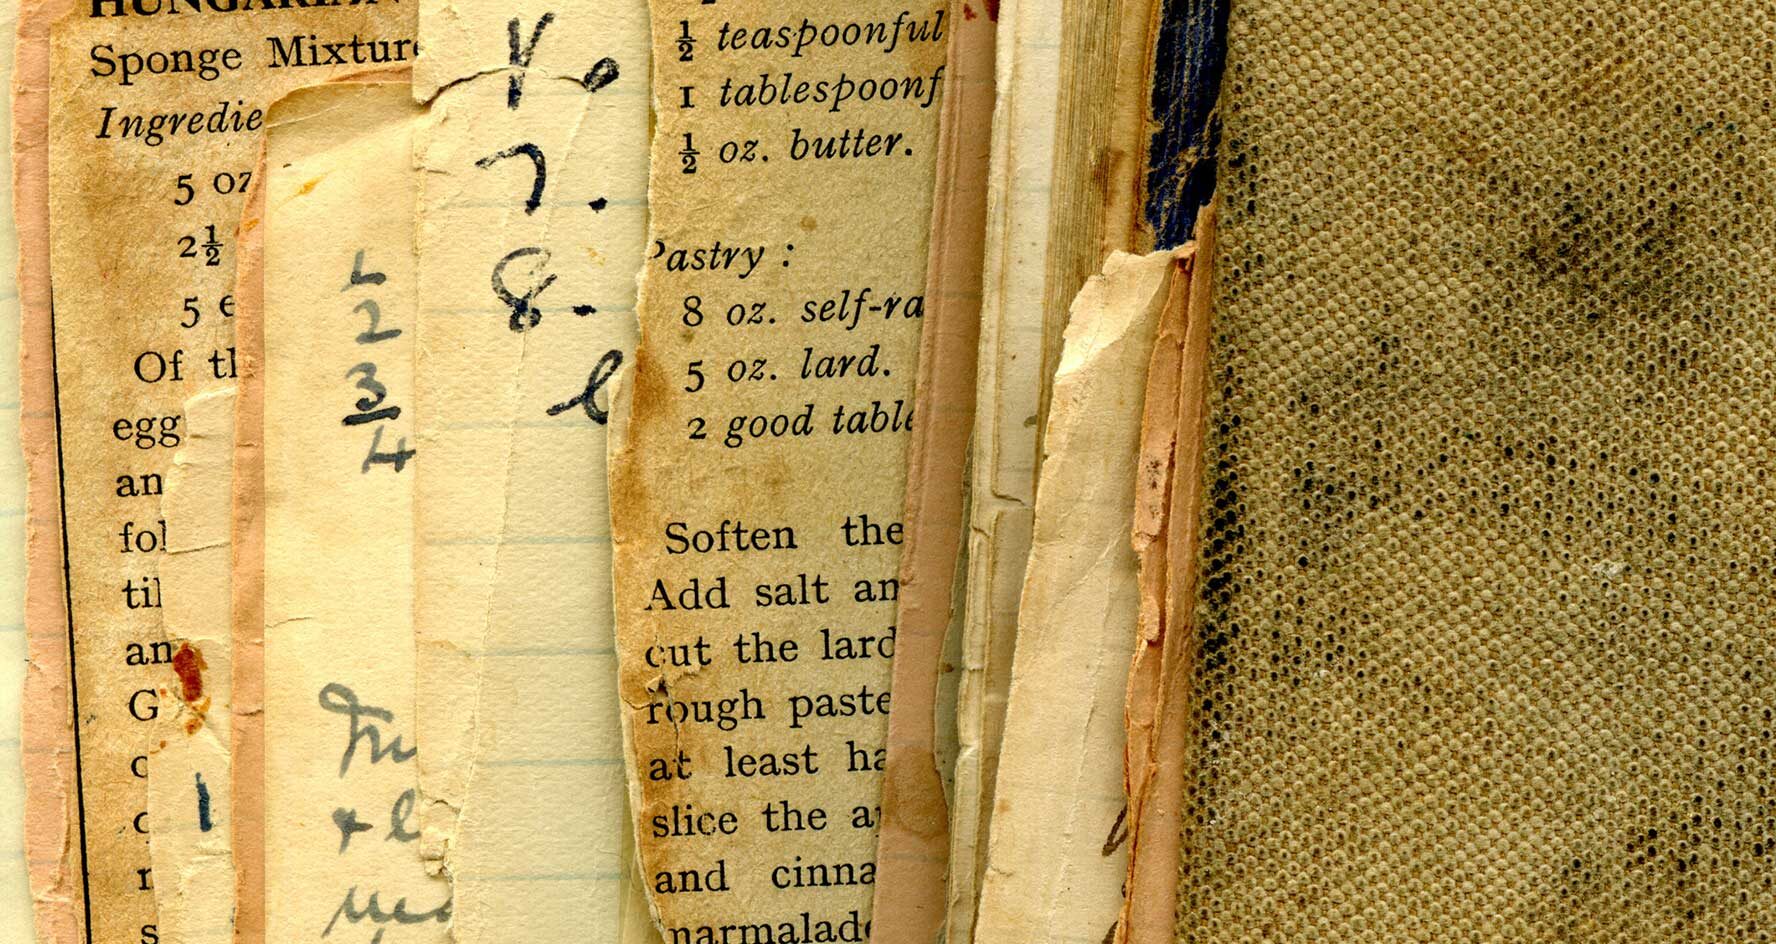 HUNGARIAN
Sponge Mixture
Ingredie
5 oz
2½
5 e
Of th
egg
an
fol
til
an
G
c
r
s
1
2
3
4
7.
8.
½ teaspoonful
1 tablespoonf
½ oz. butter.
Pastry :
8 oz. self-ra
5 oz. lard.
2 good table
Soften the
Add salt an
cut the lard
rough paste
at least ha
slice the a
and cinna
marmalade